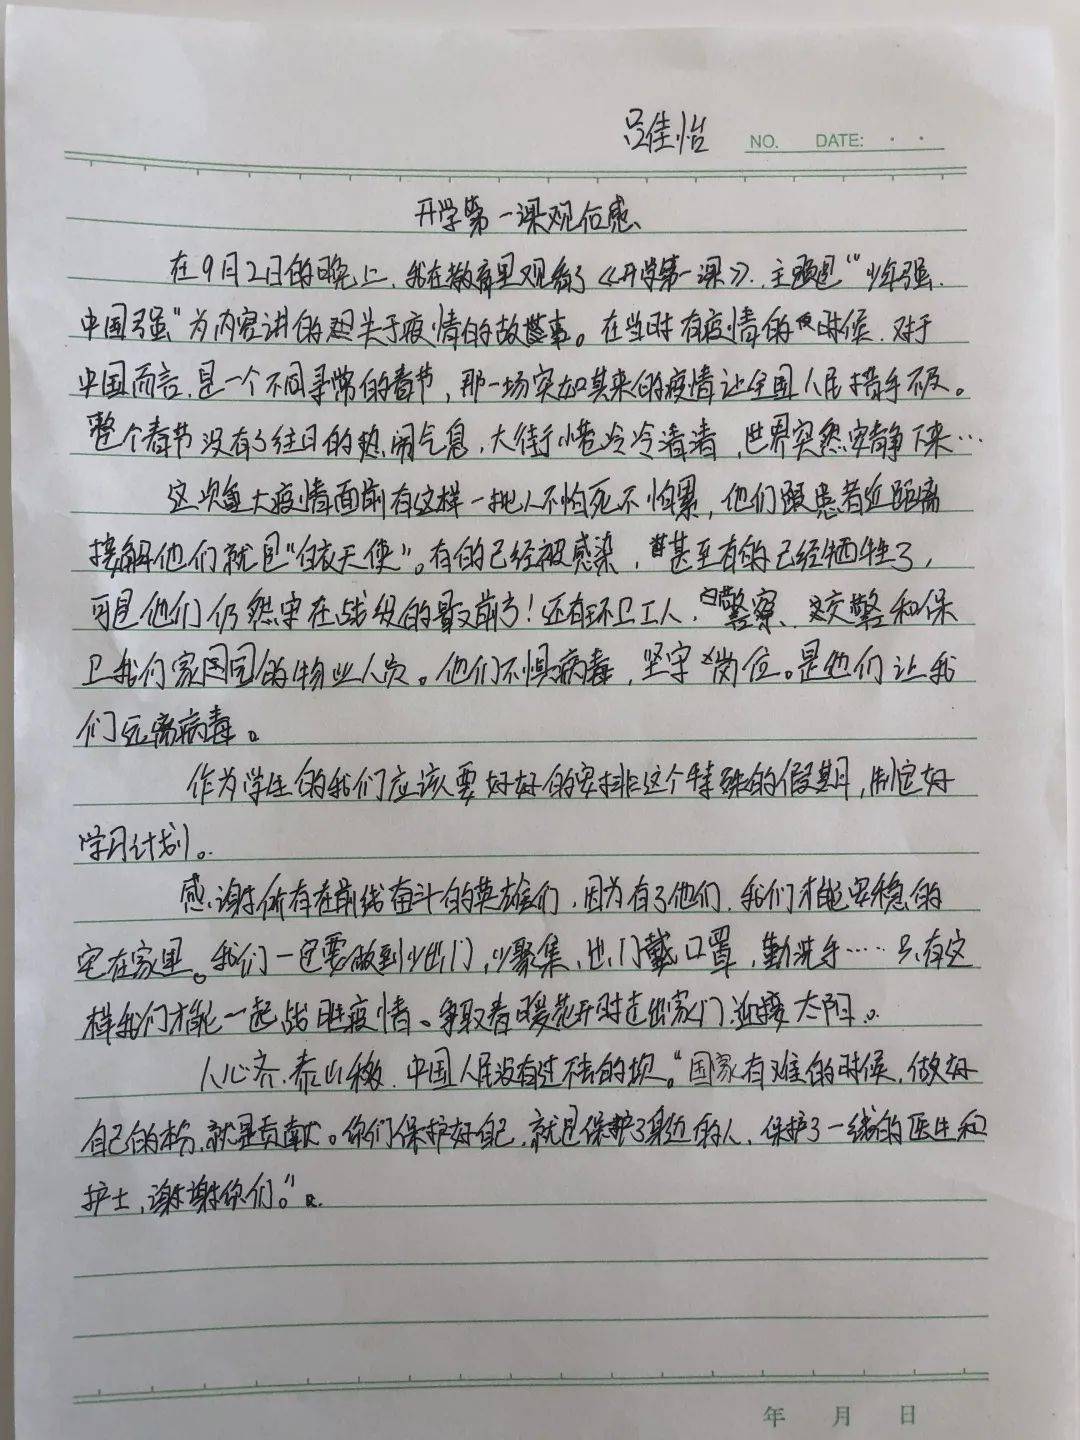 吕佳怡
NO. DATE:
开学第一课观后感、
在9月2日的晚上、我在教育里观看了《开学第一课》、主题是"少年强、
中国强"为内容讲的是关于疫情的故事。在当时有疫情的时候、对于
中国而言、是一个不同寻常的春节，那一场突如其来的疫情让全国人民措手不及。
整个春节没有了往日的热闹气息，大街小巷冷冷清清，世界突然安静下来…
这次重大疫情面前有这样一批人不怕死不怕累，他们跟患者近距离
接触他们就是"白衣天使"。有的已经被感染，甚至有的已经牺牲了，
可是他们仍然守在战役的最前方！还有环卫工人、警察、交警和保
卫我们家园的物业人员。他们不惧病毒，坚守岗位。是他们让我
们远离病毒。
作为学生的我们应该要好好的安排这个特殊的假期，制定好
学习计划。
感谢所有在前线奋斗的英雄们，因为有了他们、我们才能安稳的
宅在家里。我们一定要做到少出门，少聚集，出门戴口罩，勤洗手……只有这
样我们才能一起战胜疫情。争取春暖花开时走出家门、迎接太阳。
人心齐、泰山移、中国人民没有过不去的坝。"国家有难的时候、做好
自己的本份、就是贡献。你们保护好自己、就是保护了身边的人、保护了一线的医生和
护士，谢谢你们。"
年 月 日